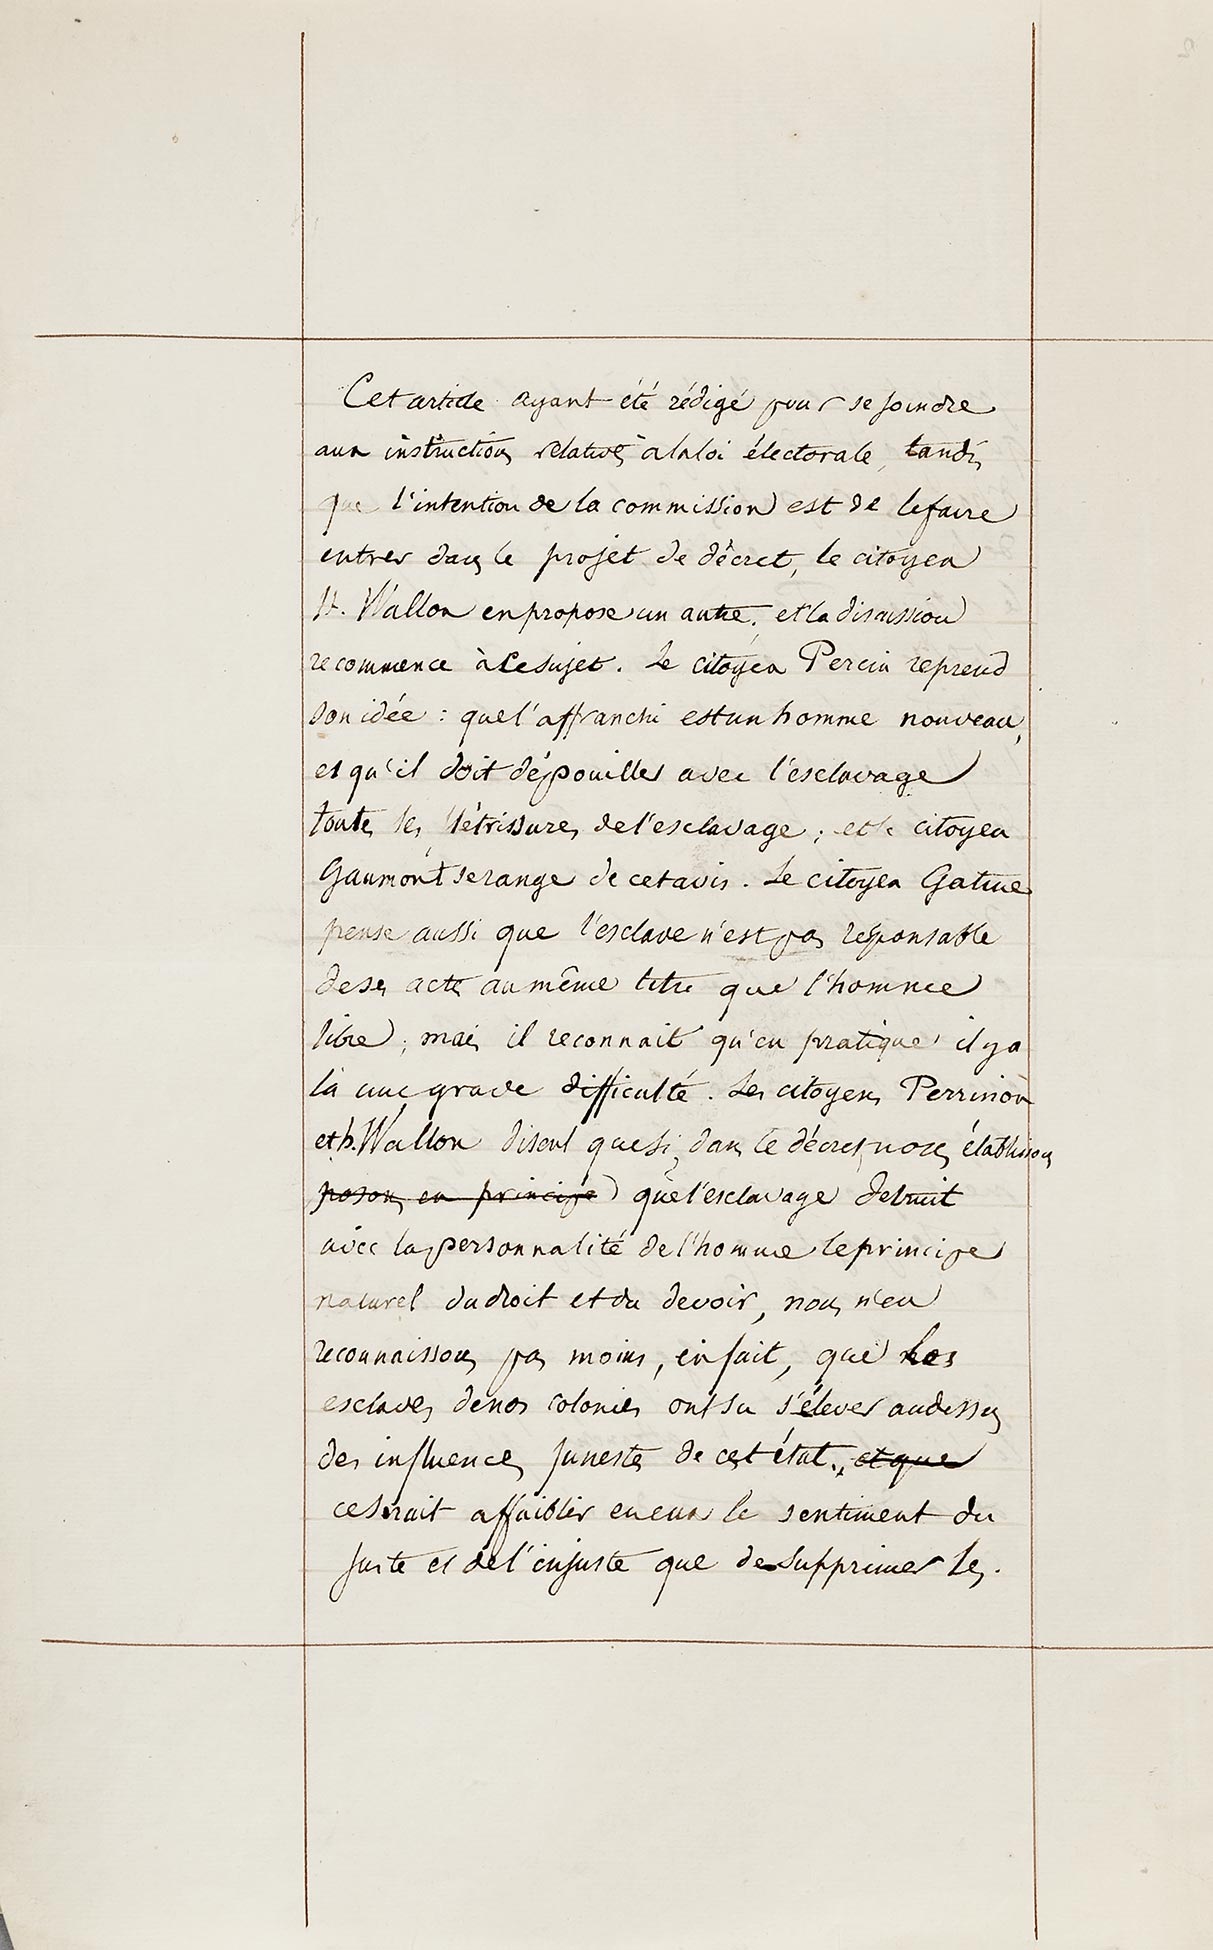 Cet article ayant été rédigé pour se joindre
aux instructions relatives à la loi électorale, tandis
que l'intention de la commission est de le faire
entrer dans le projet de décret, le citoyen
H. Wallon en propose un autre, et la discussion
recommence à ce sujet. Le citoyen Percin reprend
son idée : que l'affranchi est un homme nouveau,
et qu'il doit dépouiller avec l'esclavage
toutes les flétrissures de l'esclavage ; et le citoyen
Gaumont se range de cet avis. Le citoyen Gatine
pense aussi que l'esclave n'est pas responsable
de ses actes au même titre que l'homme
libre ; mais il reconnait qu'en pratique il y a
là une grave difficulté. Les citoyens Perrinon
et h. Wallon disent que si, dans le décret, nous établissons
posons en principe que l'esclavage détruit
avec la personnalité de l'homme le principe
naturel du droit et du devoir, nous n'en
reconnaissons pas moins, en fait, que les
esclaves de nos colonies ont su s'élever au dessus
des influences funestes de cet état., et que
ce serait affaiblir en eux le sentiment du
juste et de l'injuste que de supprimer les.